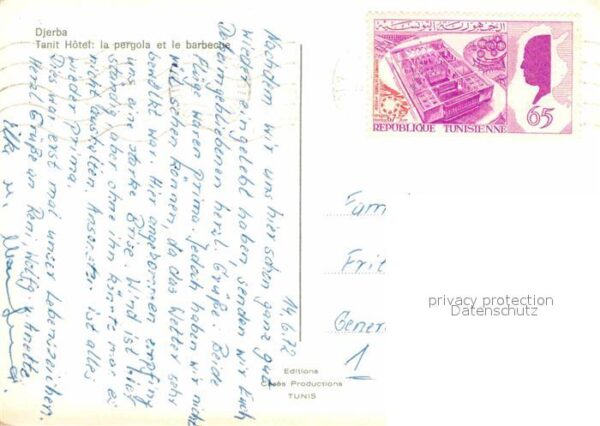 Djerba
Tanit Hôtel: la pergola et le barbecue
14.6.72
Nachdem wir uns hier schon ganz gut
wieder eingelebt haben, senden wir Euch
Daheimgebliebenen herzl. Grüße. Beide
Flüge waren prima. Jedoch haben wir nicht
viel sehen können, da das Wetter sehr
bewölkt war. Hier angekommen empfing
uns eine starke Brise. Wind ist hier
ständig, aber ohne ihn könnte man es
nicht aushalten. Ansonsten ist alles
wieder prima.
Dies wär erst mal unser Lebenszeichen.
Herzl. Grüße an Reni, Wolfg. u. Anette
الجمهورية التونسية
REPUBLIQUE TUNISIENNE
65
Fam
Frit
Gener
1
privacy protection
Datenschutz
Editions
Productions
TUNIS